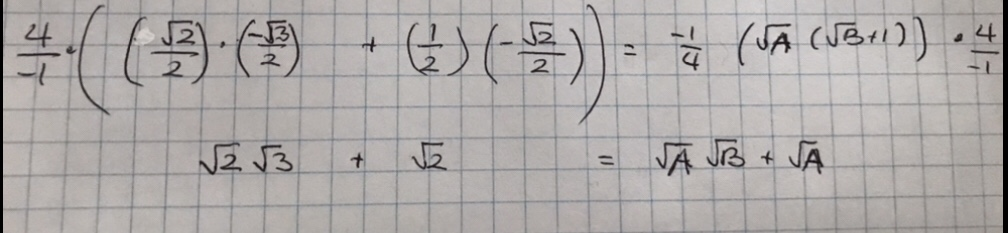 4/-1 · ( (√2/2) · (-√3/2) + (1/2) (-√2/2) ) = -1/4 (√A (√B+1)) · 4/-1
√2 √3 + √2 = √A √B + √A